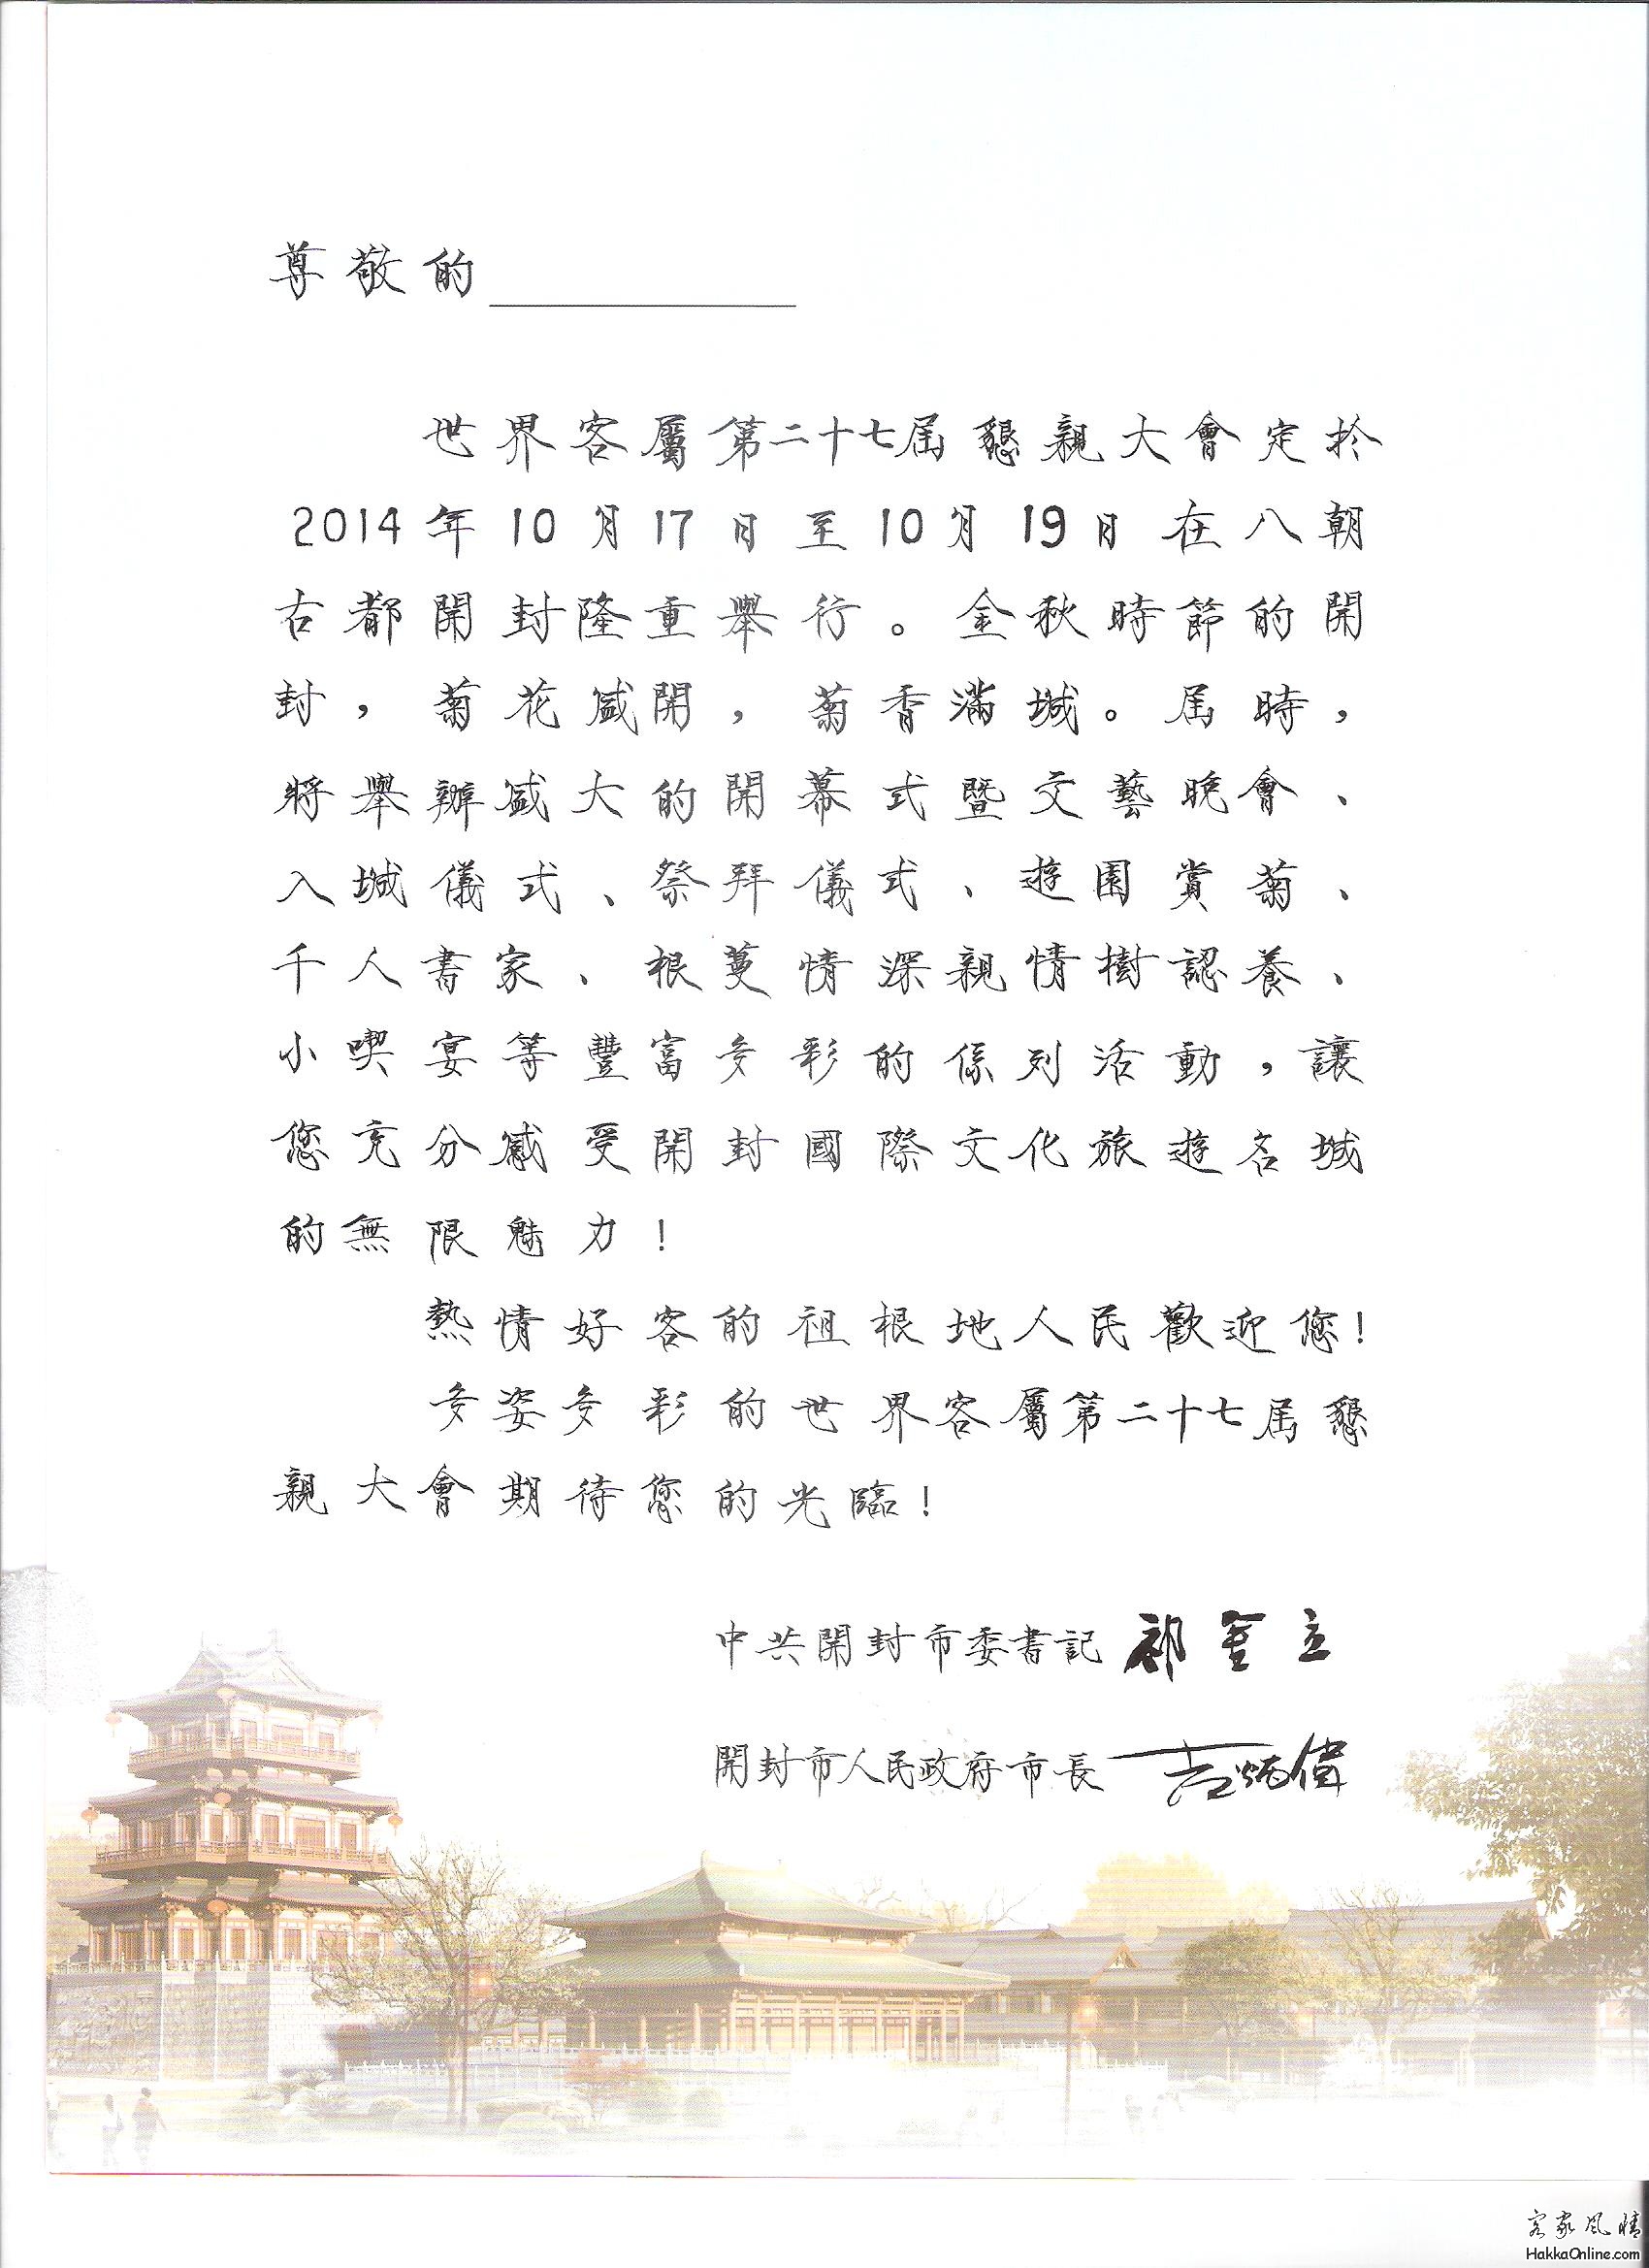 尊敬的
世界客屬第二十七届懇親大會定於
2014年10月17日至10月19日在八朝
古都開封隆重舉行。金秋時節的開
封，菊花盛開，菊香滿城。届時，
將舉辦盛大的開幕式暨文藝晚會、
入城儀式、祭拜儀式、遊園賞菊、
千人書家、根蔓情深親情樹認養、
小喫宴等豐富多彩的係列活動，讓
您充分感受開封國際文化旅遊名城
的無限魅力！
熱情好客的祖根地人民歡迎您！
多姿多彩的世界客屬第二十七届懇
親大會期待您的光臨！
中共開封市委書記 祁金立
開封市人民政府市長 吉炳偉
客家風情
HakkaOnline.com